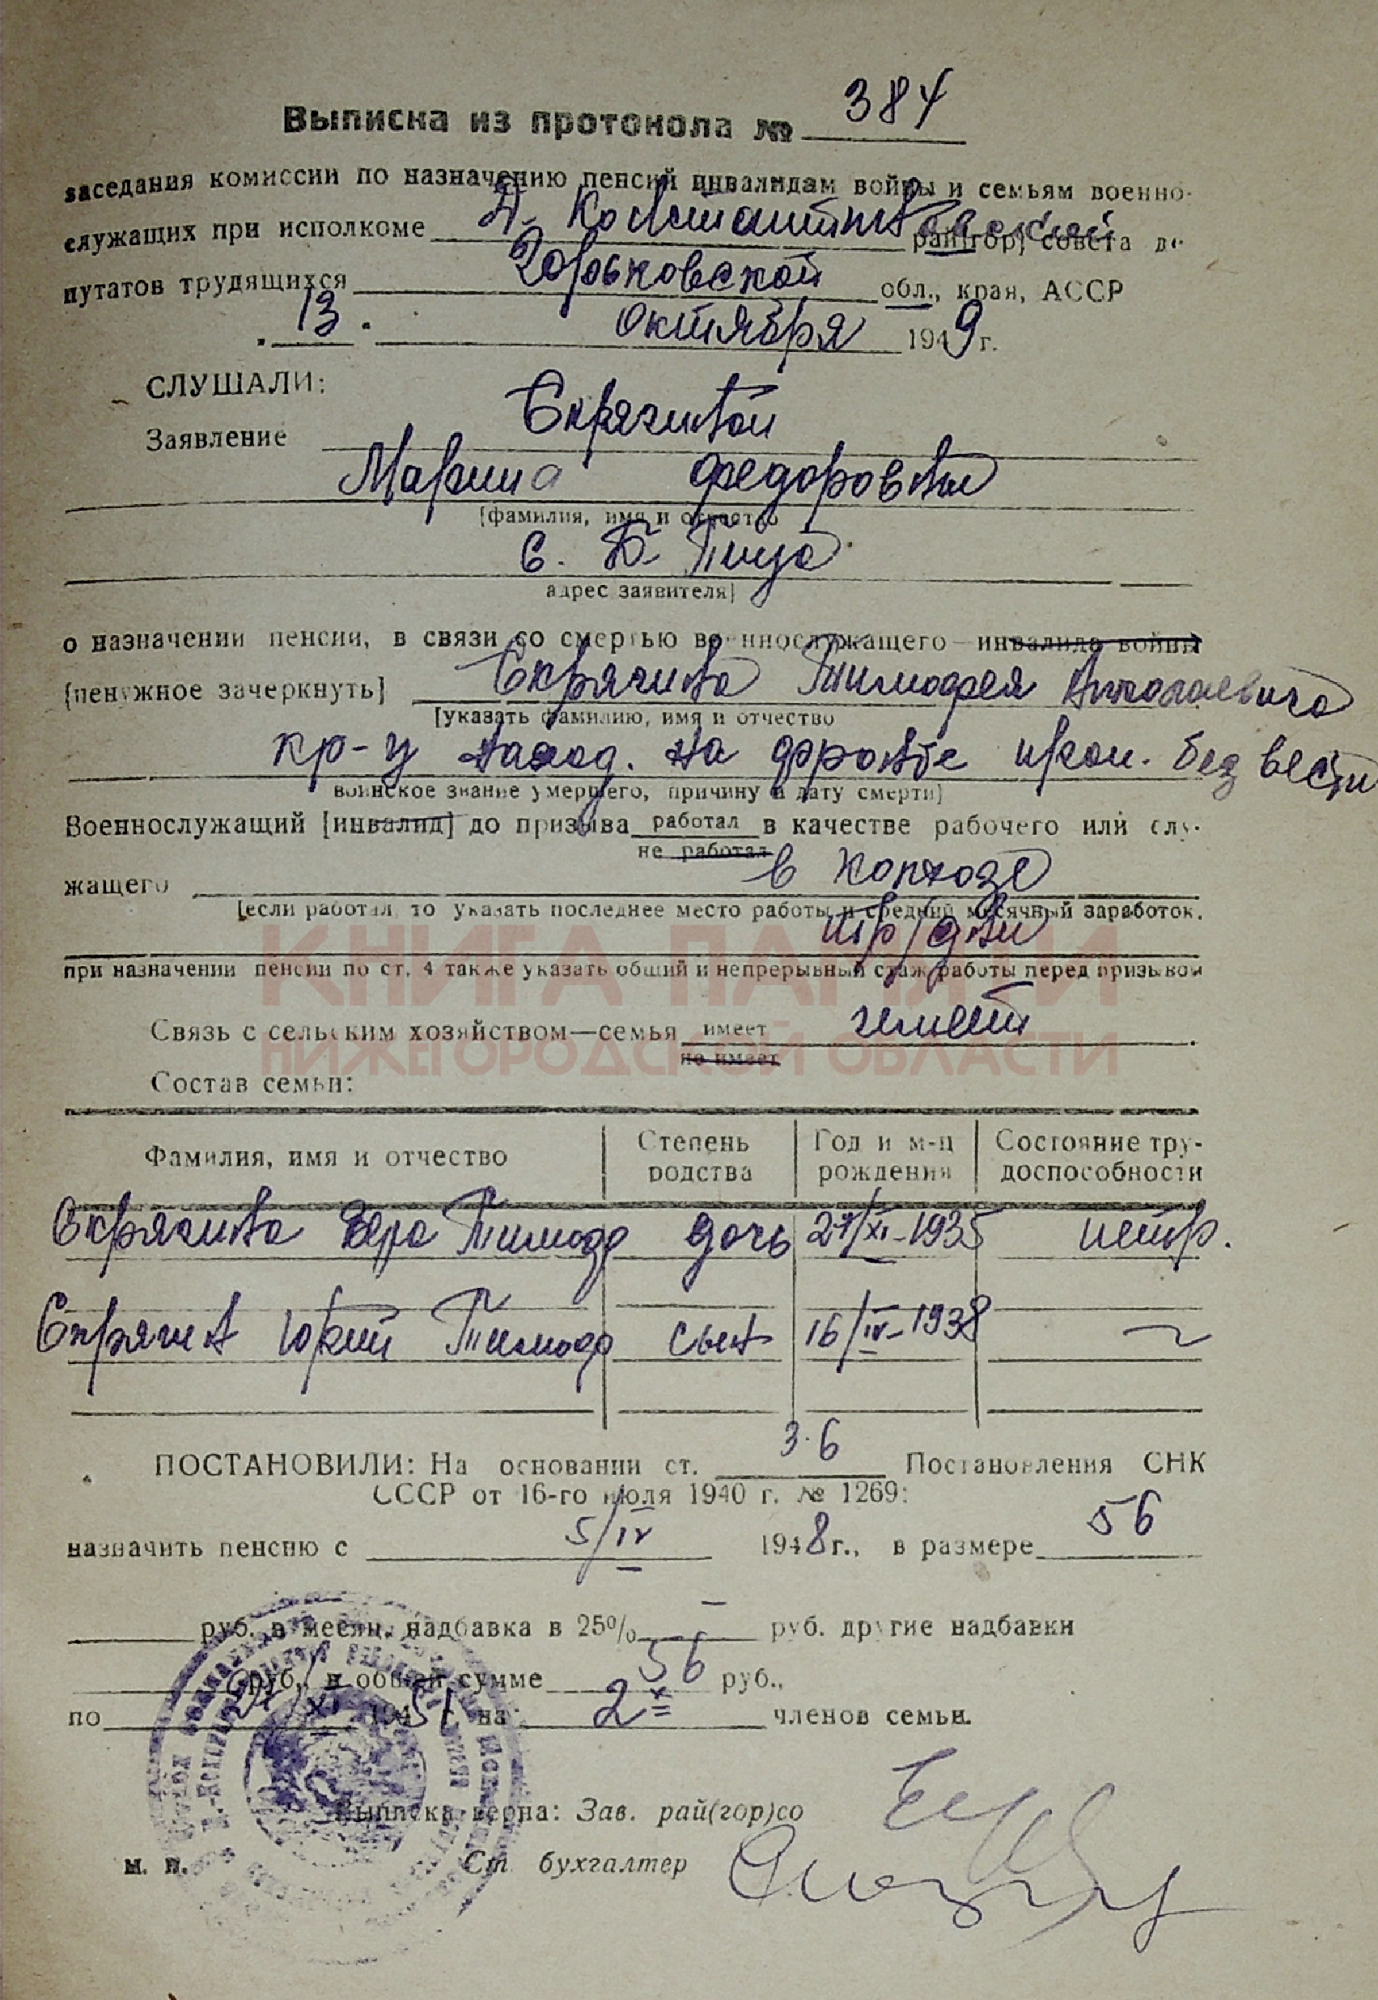 Выписка из протокола № 384
заседания комиссии по назначению пенсий инвалидам войны и семьям военно-
служащих при исполкоме Д. Константиновский рай[гор] совета де-
путатов трудящихся Горьковской обл., края, АССР
„13„ октября 1949 г.
СЛУШАЛИ:
Заявление Скрягиной
Мариша Федоровны
[фамилия, имя и отчество
с. Б-Пица
адрес заявителя]
о назначении пенсии, в связи со смертью военнослужащего—инвалида войны
[ненужное зачеркнуть] Скрягина Тимофея Николаевича
[указать фамилию, имя и отчество
кр-ц наход. на фронте проп. без вести
воинское звание умершего, причину и дату смерти]
Военнослужащий [инвалид] до призыва работал в качестве рабочего или слу-
не работал
жащего в колхозе
[если работал, то указать последнее место работы и средний месячный заработок,
тр/дни
при назначении пенсии по ст. 4 также указать общий и непрерывный стаж работы перед призывом
КНИГА ПАМЯТИ
НИЖЕГОРОДСКОЙ ОБЛАСТИ
Связь с сельским хозяйством—семья имеет имеет.
не имеет
Состав семьи:
Фамилия, имя и отчество Степень родства Год и м-ц рождения Состояние тру-доспособности
Скрягина Вера Тимоф дочь 27/XI-1935 нетр.
Скрягин Юрий Тимоф сын 16/IV-1938 ~
ПОСТАНОВИЛИ: На основании ст. 3·6 Постановления СНК
СССР от 16-го июля 1940 г. № 1269:
назначить пенсию с 5/IV 1948 г., в размере 56
руб. в месяц, надбавка в 25% — руб. другие надбавки
руб., в общей сумме 56 руб.,
по 27/XI 1951 г. на 2х членов семьи.
Выписка верна: Зав. рай(гор)со
м. п. Ст бухгалтер